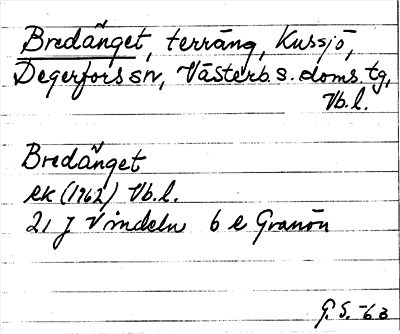 Bredänget, terräng, Kussjö,
Degerfors sn, Västerb. s. doms. tg,
Vb. l.
Bredänget
ek (1962) Vb. l.
21 J Vindeln 6 e Granön
G. S. -63